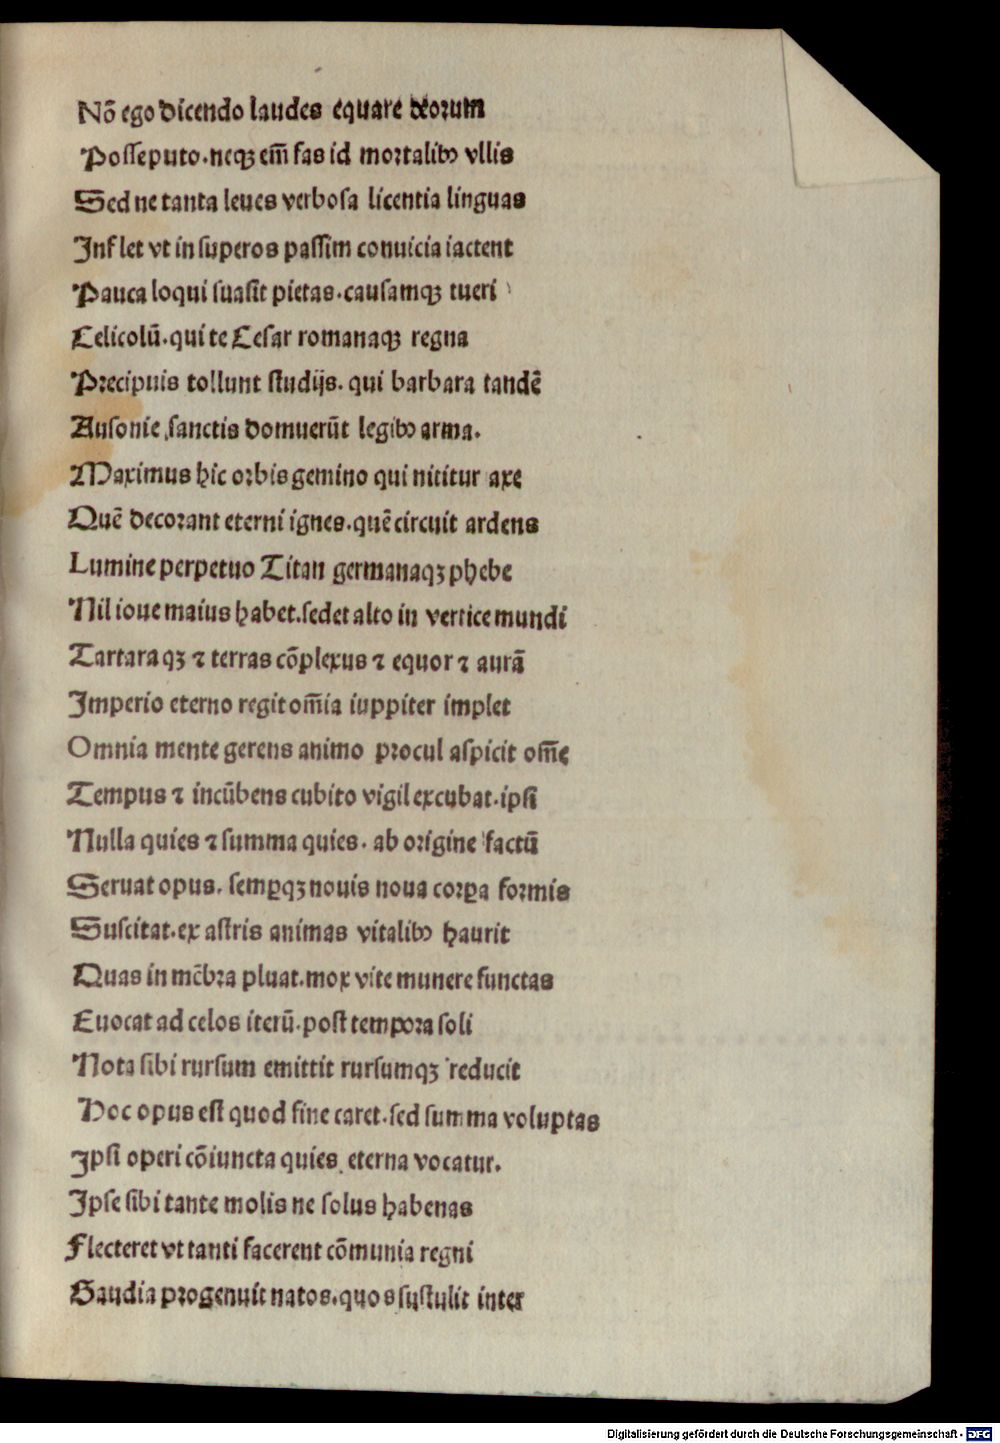 Nō ego dicendo laudes equare deorum
Posse puto.neqꝫ em̄ fas id mortalibꝰ vllis
Sed ne tanta leues verbosa licentia linguas
Inflet vt in superos passim conuicia iactent
Pauca loqui suasit pietas.causamqꝫ tueri
Celicolū.qui te Cesar romanaqꝫ regna
Precipuis tollunt studijs.qui barbara tandē
Ausonie sanctis domuerūt legibꝰ arma.
Maximus hic orbis gemino qui nititur axe
Quē decorant eterni ignes.quē circuit ardens
Lumine perpetuo Titan germanaqꝫ phebe
Nil ioue maius habet.sedet alto in vertice mundi
Tartaraqꝫ ⁊ terras cōplexus ⁊ equor ⁊ aurā
Imperio eterno regit om̄ia iuppiter implet
Omnia mente gerens animo procul aspicit om̄e
Tempus ⁊ incūbens cubito vigil excubat.ipsi
Nulla quies ⁊ summa quies.ab origine factū
Seruat opus.semꝑqꝫ nouis noua corꝑa formis
Suscitat.ex astris animas vitalibꝰ haurit
Quas in mēbra pluat.mox vite munere functas
Euocat ad celos iterū.post tempora soli
Nota sibi rursum emittit rursumqꝫ reducit
Hoc opus est quod fine caret.sed summa voluptas
Ipsi operi cōiuncta quies eterna vocatur.
Ipse sibi tante molis ne solus habenas
Flecteret vt tanti facerent cōmunia regni
Gaudia progenuit natos.quos sustulit inter
Digitalisierung gefördert durch die Deutsche Forschungsgemeinschaft - DFG